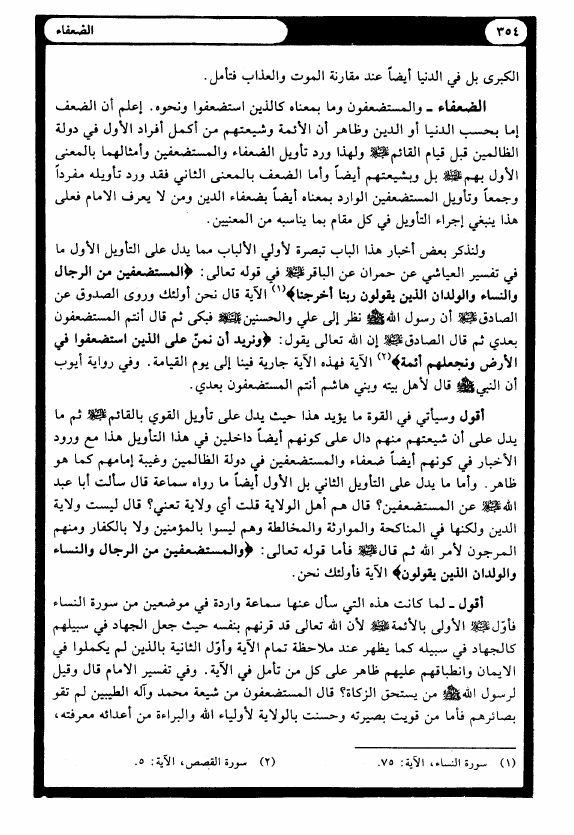 ٣٥٤
الضعفاء
الكبرى بل في الدنيا أيضاً عند مقارنة الموت والعذاب فتأمل.
الضعفاء ـ والمستضعفون وما بمعناه كالذين استضعفوا ونحوه. إعلم أن الضعف
إما بحسب الدنيا أو الدين وظاهر أن الأئمة وشيعتهم من أكمل أفراد الأول في دولة
الظالمين قبل قيام القائم ﷺ ولهذا ورد تأويل الضعفاء والمستضعفين وأمثالهما بالمعنى
الأول بهم ﷺ بل وبشيعتهم أيضاً وأما الضعف بالمعنى الثاني فقد ورد تأويله مفرداً
وجمعاً وتأويل المستضعفين الوارد بمعناه أيضاً بضعفاء الدين ومن لا يعرف الامام فعلى
هذا ينبغي إجراء التأويل في كل مقام بما يناسبه من المعنيين.
ولنذكر بعض أخبار هذا الباب تبصرة لأولي الألباب مما يدل على التأويل الأول ما
في تفسير العياشي عن حمران عن الباقر ﷺ في قوله تعالى: ﴿المستضعفين من الرجال
والنساء والولدان الذين يقولون ربنا أخرجنا﴾(١) الآية قال نحن أولئك وروى الصدوق عن
الصادق ﷺ أن رسول الله ﷺ نظر إلى علي والحسنين ﷺ فبكى ثم قال أنتم المستضعفون
بعدي ثم قال الصادق ﷺ إن الله تعالى يقول: ﴿ونريد أن نمنّ على الذين استضعفوا في
الأرض ونجعلهم أئمة﴾(٢) الآية فهذه الآية جارية فينا إلى يوم القيامة. وفي رواية أيوب
أن النبي ﷺ قال لأهل بيته وبني هاشم أنتم المستضعفون بعدي.
أقول وسيأتي في القوة ما يؤيد هذا حيث يدل على تأويل القوي بالقائم ﷺ ثم ما
يدل على أن شيعتهم منهم دال على كونهم أيضاً داخلين في هذا التأويل هذا مع ورود
الأخبار في كونهم أيضاً ضعفاء والمستضعفين في دولة الظالمين وغيبة إمامهم كما هو
ظاهر. وأما ما يدل على التأويل الثاني بل الأول أيضاً ما رواه سماعة قال سألت أبا عبد
الله ﷺ عن المستضعفين؟ قال هم أهل الولاية قلت أي ولاية تعني؟ قال ليست ولاية
الدين ولكنها في المناكحة والموارثة والمخالطة وهم ليسوا بالمؤمنين ولا بالكفار ومنهم
المرجون لأمر الله ثم قال ﷺ فأما قوله تعالى: ﴿والمستضعفين من الرجال والنساء
والولدان الذين يقولون﴾ الآية فأولئك نحن.
أقول ـ لما كانت هذه التي سأل عنها سماعة واردة في موضعين من سورة النساء
فأوّل ﷺ الأولى بالأئمة ﷺ لأن الله تعالى قد قرنهم بنفسه حيث جعل الجهاد في سبيلهم
كالجهاد في سبيله كما يظهر عند ملاحظة تمام الآية وأوّل الثانية بالذين لم يكملوا في
الايمان وانطباقهم عليهم ظاهر على كل من تأمل في الآية. وفي تفسير الامام قال وقيل
لرسول الله ﷺ من يستحق الزكاة؟ قال المستضعفون من شيعة محمد وآله الطيبين لم تقو
بصائرهم فأما من قويت بصيرته وحسنت بالولاية لأولياء الله والبراءة من أعدائه معرفته،
(١) سورة النساء، الآية: ٧٥.
(٢) سورة القصص، الآية: ٥.